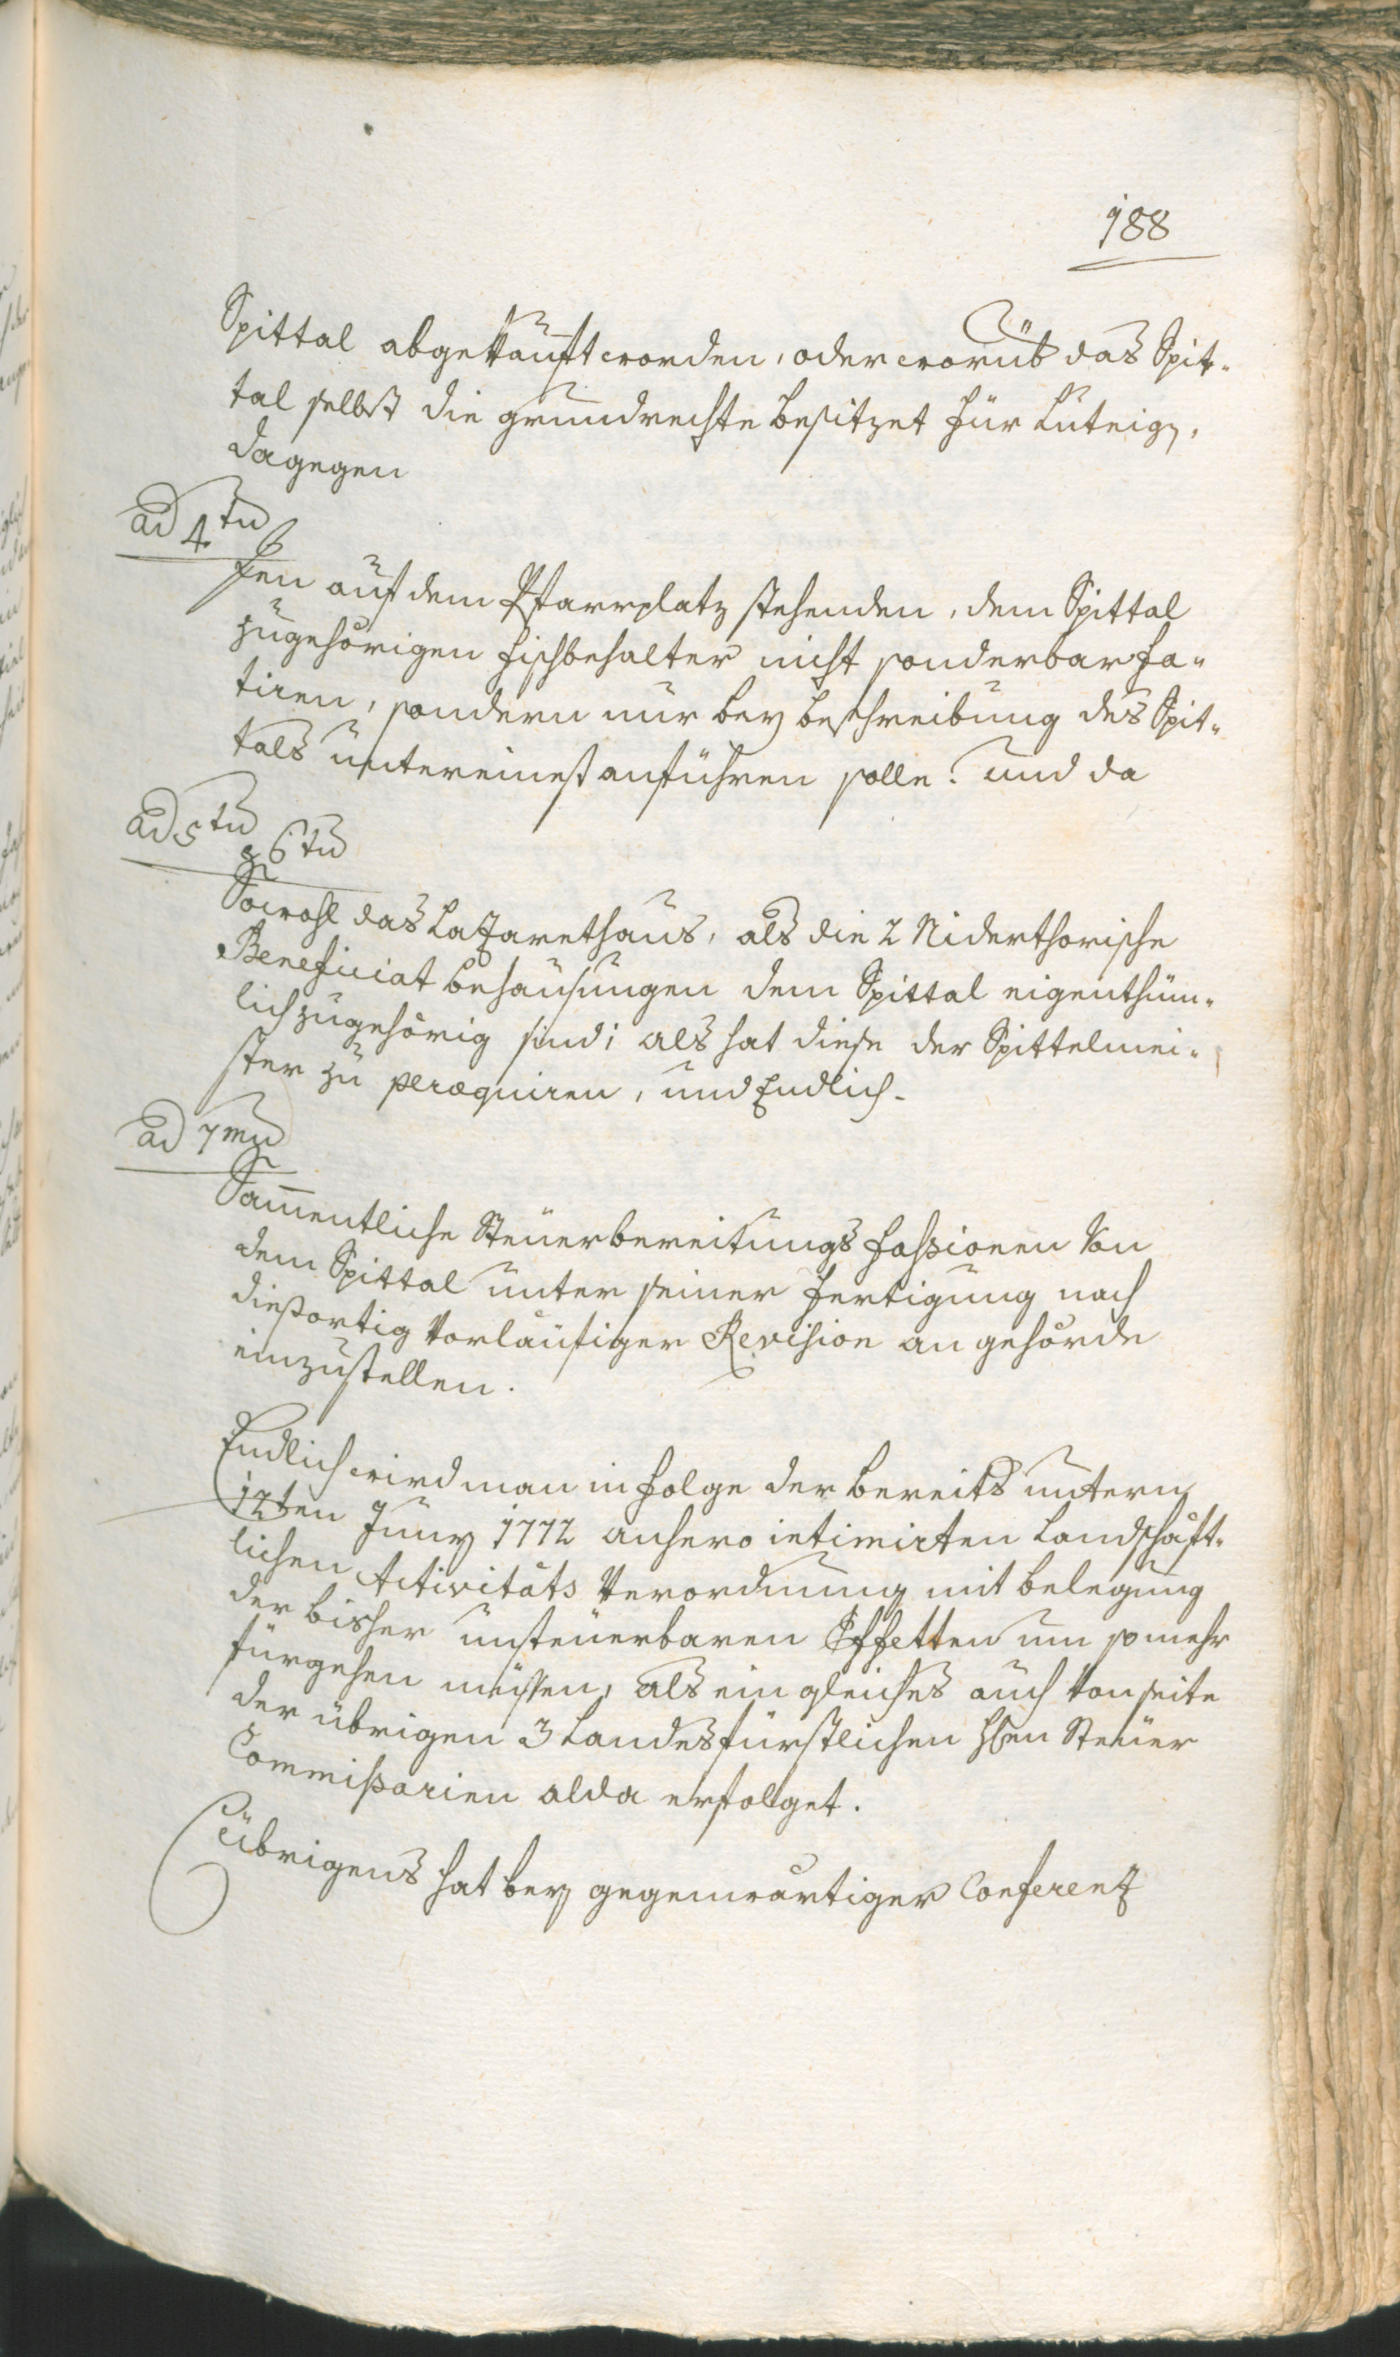 188
Spittal abgekauft worden, oder worüb das Spit-
tal selbst die grundrechte besitzet für Luteig,
dagegen
ad 4tu
Hen auf dem Pfarrplatz stehenden, dem Spittal
zugehörigen fischbehalter nicht sonderbar fa-
tiren, sondern nur bey beschreibung des Spit-
tals untereinest anführen solle. und da
ad 5tu
& 6tu
Sowohl das Lazarethaus, als die 2 Niderthorische
Beneficiat behausungen dem Spittal eigenthüm-
lich zugehörig sind; als hat diese der Spittelmei-
ster zu peræquiren, und Endlich.
ad 7mu
Sam̄entliche Steuerbereitungs fassionen von
dem Spittal unter seiner fertigung nach
diesortig vorläufiger Revision an gehörde
einzustellen.
Endlich wird man in folge der bereits untern
12ten Juny 1772 anhero intimirten Landschäft-
lichen Activitäts Verordnung mit belegung
der bisher unsteuerbaren Effetten um so mehr
fürgehen müssen, als ein gleiches auch von seite
der übrigen 3 Landesfürstlichen Hhen Steuer
Commissarien alda erfolget.
übrigens hat bey gegenwärtiger Conferenz